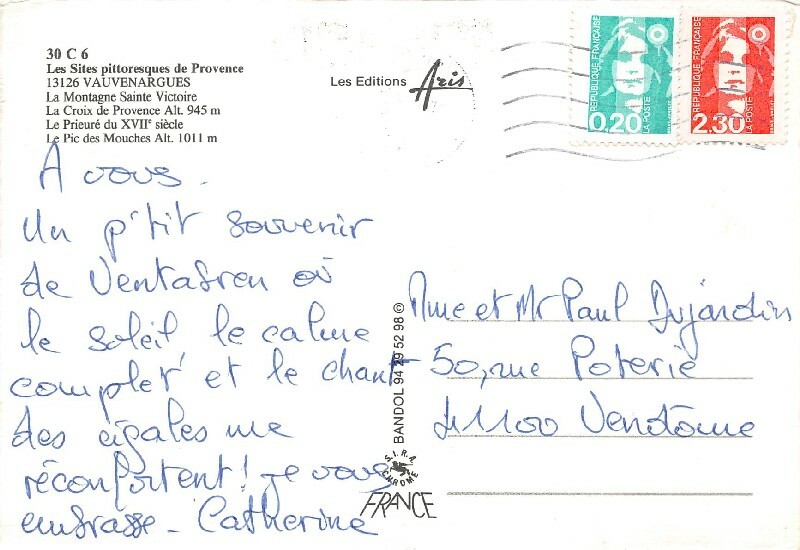 30 C 6
Les Sites pittoresques de Provence
13126 VAUVENARGUES
La Montagne Sainte Victoire
La Croix de Provence Alt. 945 m
Le Prieuré du XVIIᵉ siècle
Le Pic des Mouches Alt. 1011 m
Les Editions Aris
REPUBLIQUE FRANÇAISE
0,20
LA POSTE
REPUBLIQUE FRANÇAISE
2,30
LA POSTE
A vous.
Un p'tit souvenir
de Ventabren où
le soleil le calme
complet et le chant
des cigales me
réconfortent! je vous
embrasse - Catherine
Mme et Mr Paul Dujardin
50, rue Poterie
41100 Vendôme
BANDOL 94 29 52 98 ©
S.I.R.A.
CHROME
FRANCE